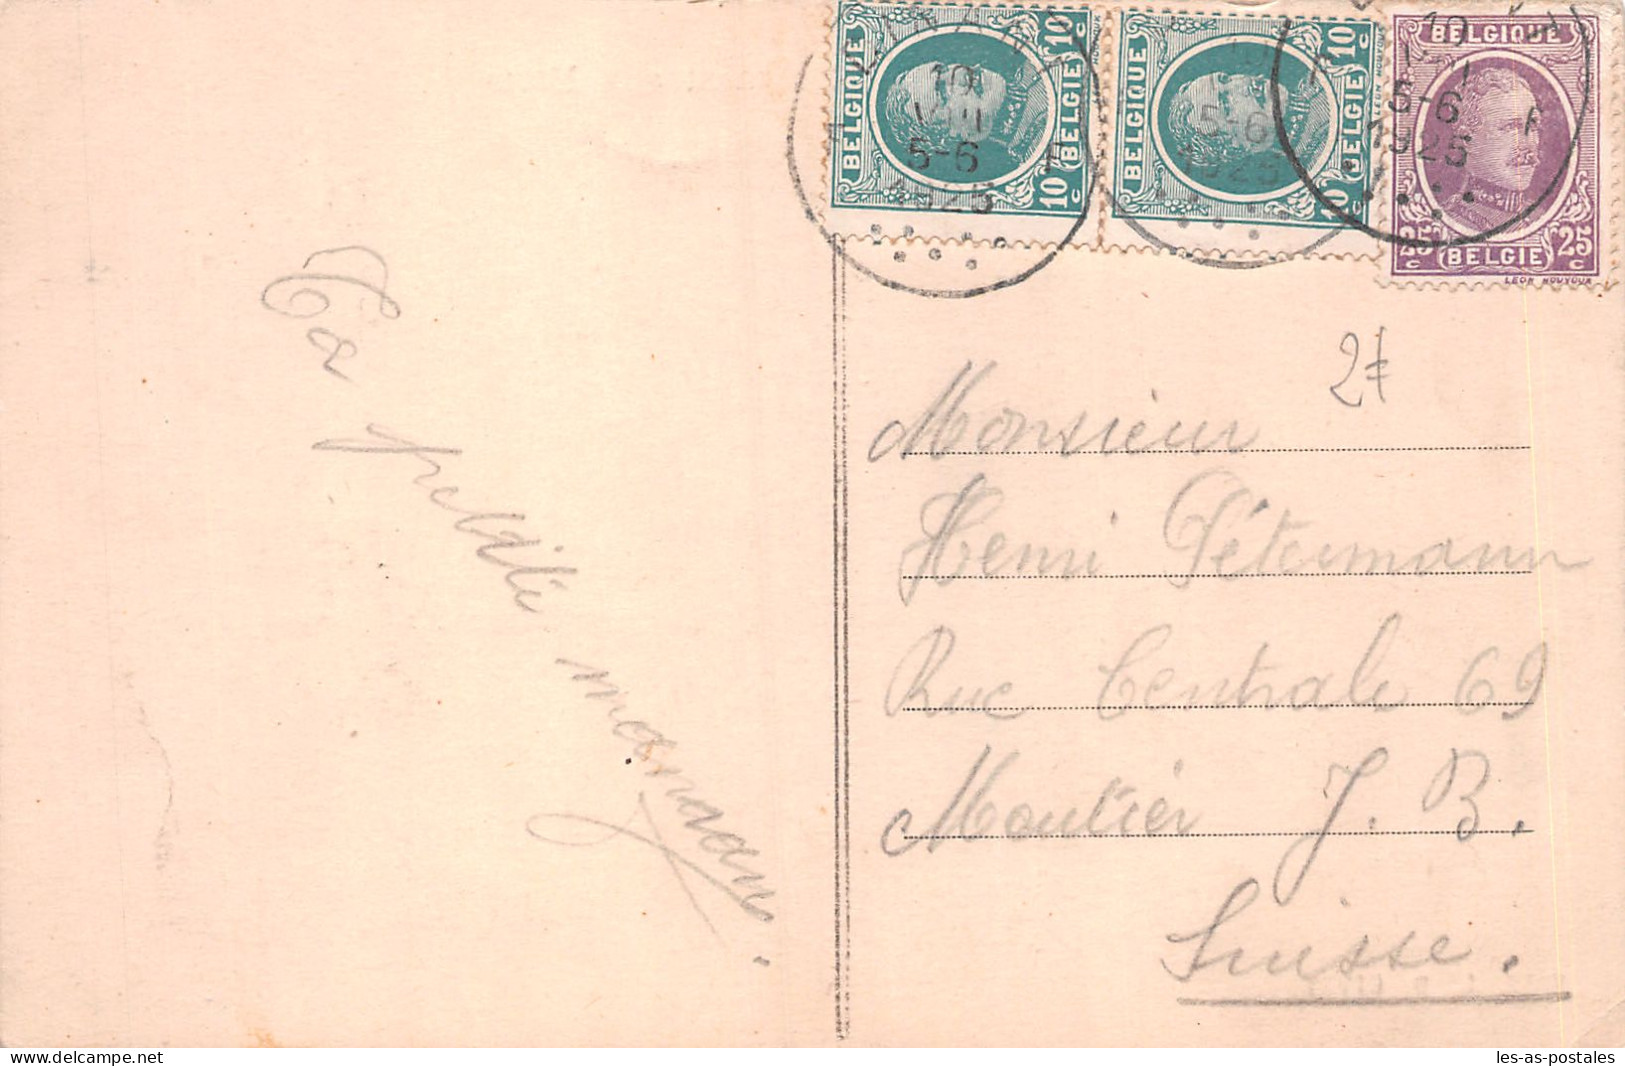 BELGIQUE 10 c BELGIE 10 c
BELGIQUE 10 c BELGIE 10 c
BELGIQUE
25 c BELGIE 25 c
10
5-6
1925
5-6
1925
10
5-6
1925
2€
Ta petite maman.
Monsieur
Henri Pétermann
Rue Centrale 69
Moutier J. B.
Suisse.
www.delcampe.net
les-as-postales